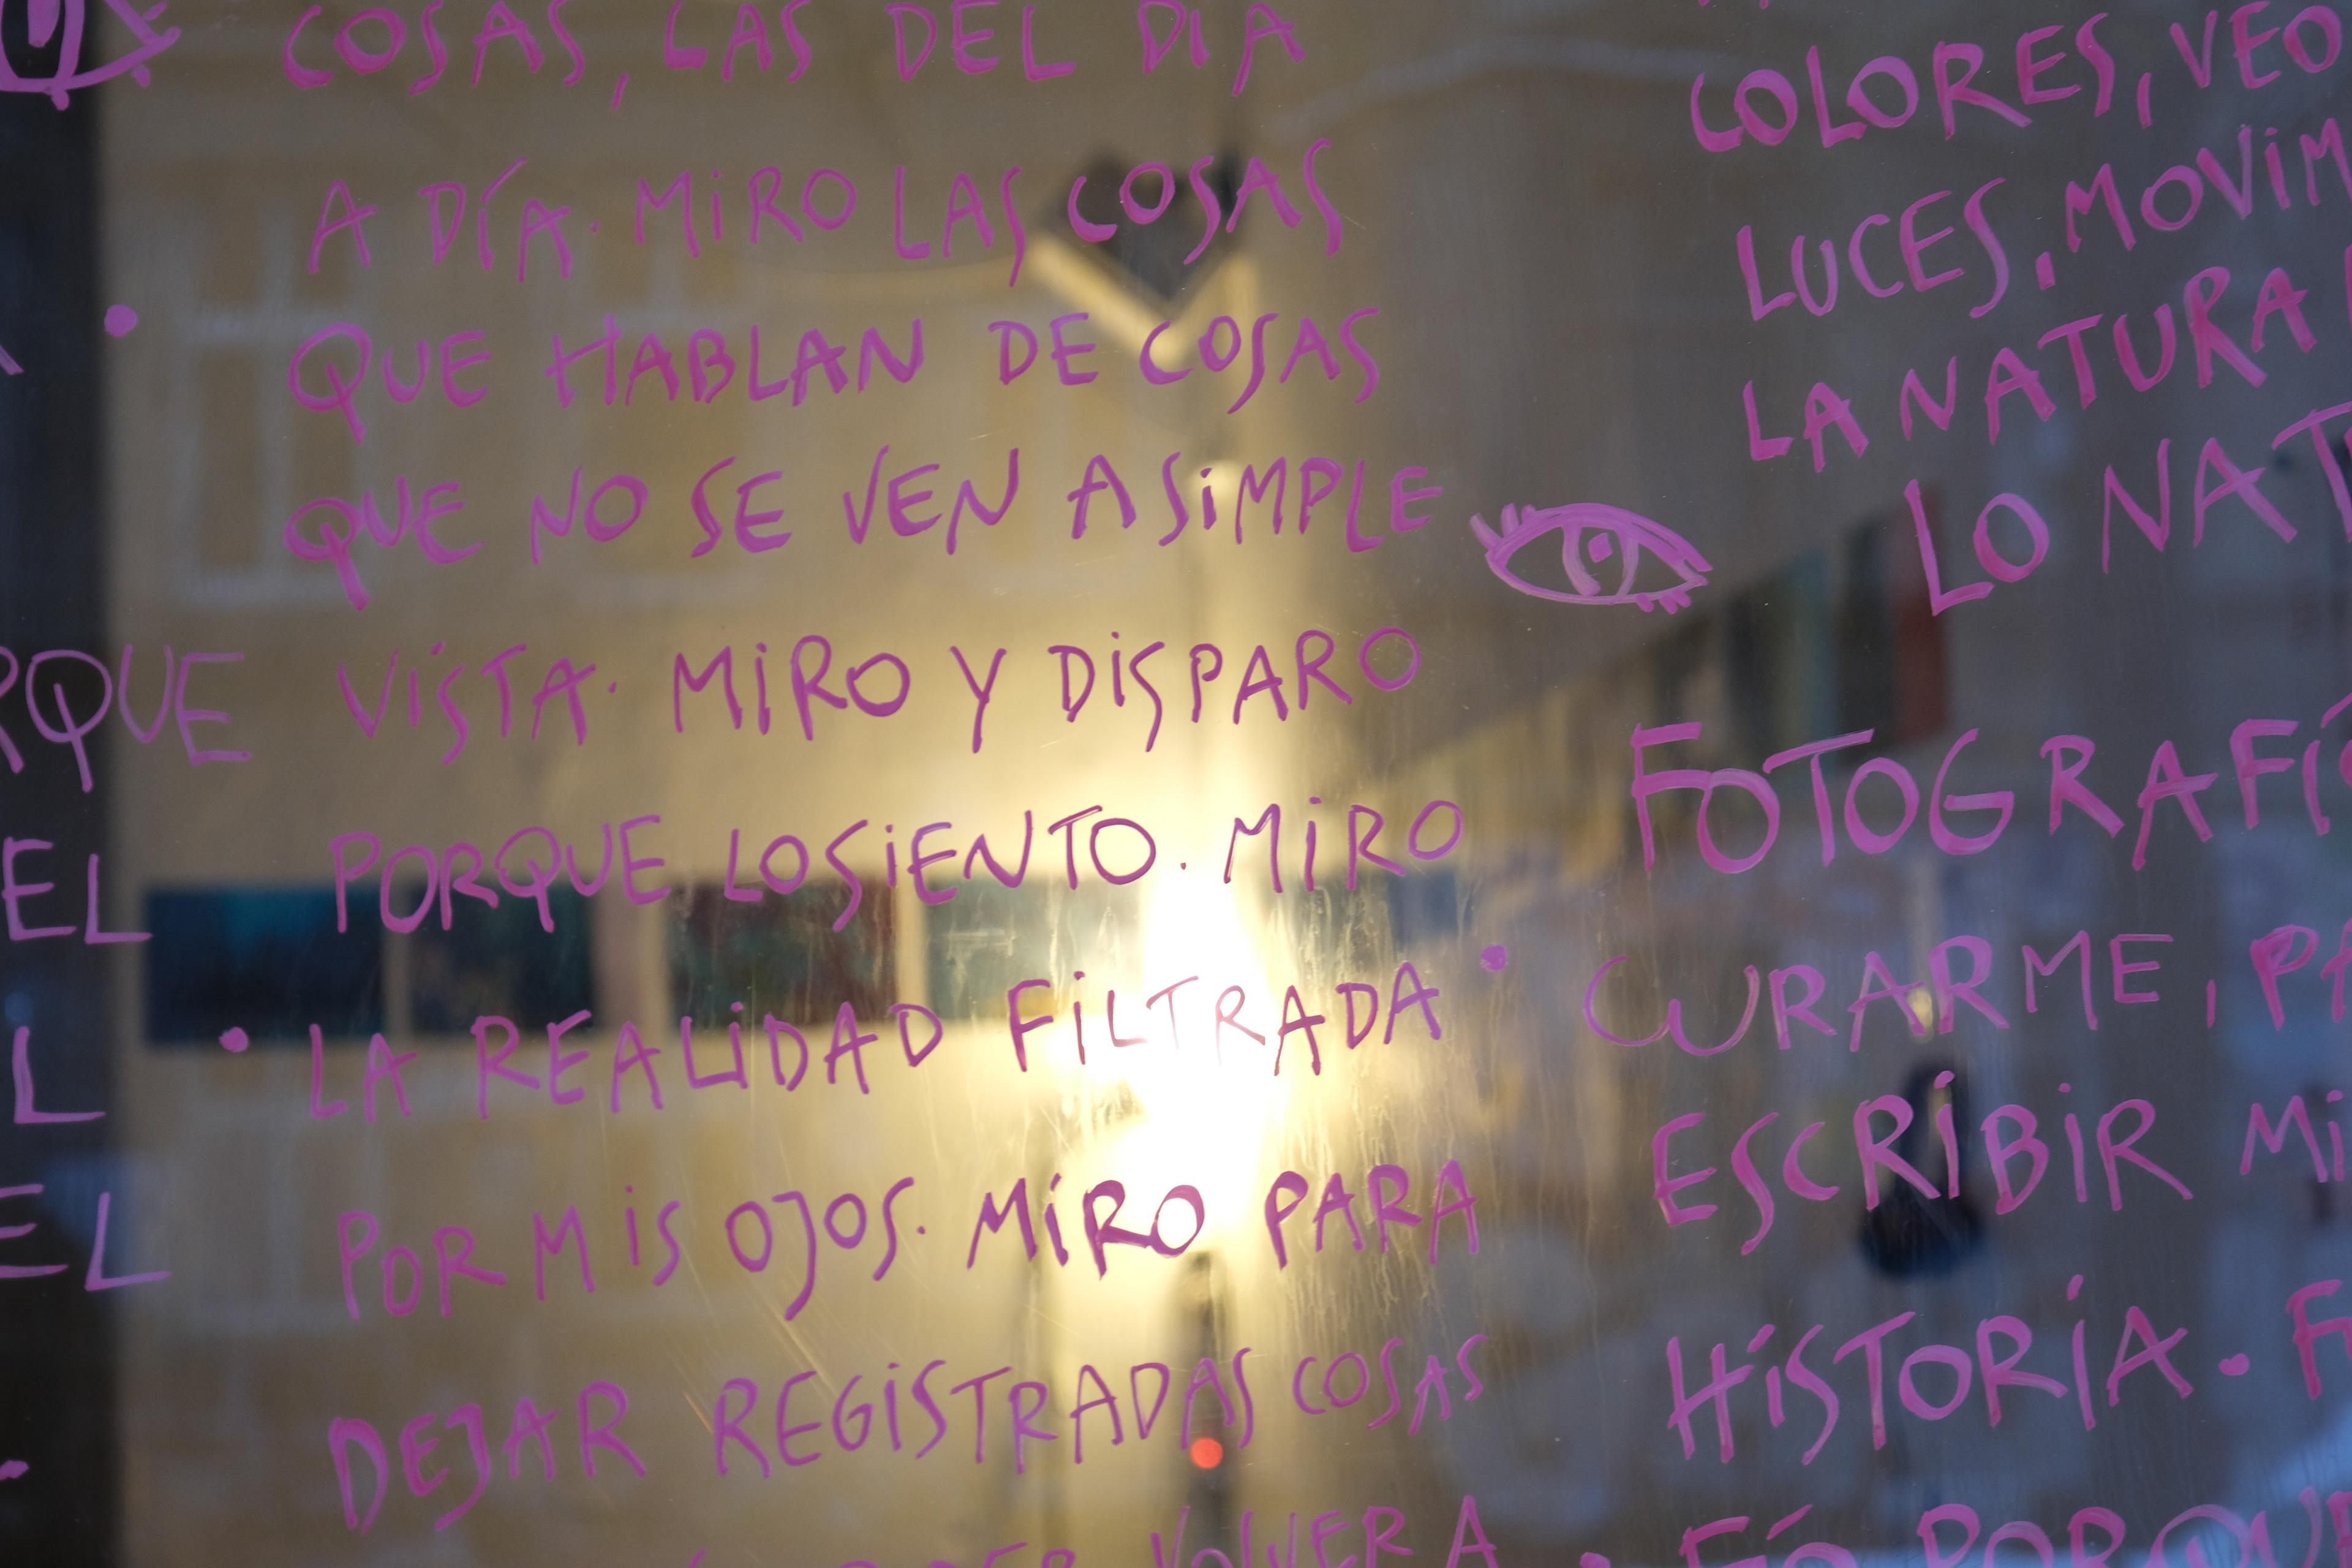 COSAS, LAS DEL DIA
A DÍA. MIRO LAS COSAS
QUE HABLAN DE COSAS
QUE NO SE VEN A SIMPLE
VISTA. MIRO Y DISPARO
PORQUE LO SIENTO. MIRO
LA REALIDAD FILTRADA
POR MIS OJOS. MIRO PARA
DEJAR REGISTRADAS COSAS
VOLVER A
COLORES, VEO
LUCES, MOVIM
LA NATURA
LO NAT
FOTOGRAFÍ
CURARME, PA
ESCRIBIR MI
HISTORIA. F
PORQU
RQUE
EL
L
EL